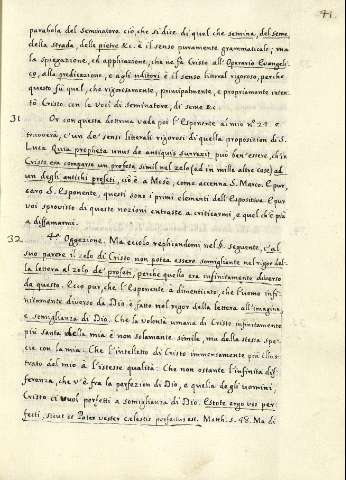 41.
parabola del seminatore ciò, che si dice di quel che semina, del seme
della strada, delle pietre &c. è il senso puramente grammaticale; ma
la spiegazione, ed applicazione, che ne fà Cristo all'Operario Evangeli-
co, alla predicazione, e agli uditori è il senso literal rigoroso, perche
questo fù quel, che rigorosamente, principalmente, e propriamente inten-
tò Cristo con le Voci di seminatore, di seme &c
31 Or con questa dottrina vada poi l'Esponente al mio nº 24 e
ritroverà, c'un de' sensi literali rigorosi di quella proposizion di S.
Luca Quia propheta unus de antiquis surrexit può ben essere, ch'in
Cristo era comparso un profeta simil nel zelo (ed in mille altre cose) ad
un degli antichi profeti, ciò è a Mosè, come accenna S. Marco. E pur,
caro S. Esponente, questi sono i primi elementi dell'Espositiva. E pur
voi sprovisto di queste nozioni entraste a criticarmi, e quel ch'è più
a diffamarmi.
32 4ª Oggezione. Ma eccolo replicandomi nel §. seguente, c'al
suo parere il zelo di Cristo non potea essere somigliante nel rigor del-
la lettera al zelo de' profeti, perche quello era infinitamente diverso
da questo. Ecco pur, che l'Esponente à dimenticato, che l'uomo infi-
nitamente diverso da Dio è fatto nel rigor della lettera all'imagine,
e somiglianza di Dio. Che la volontà umana di Cristo infinitamente
più santa della mia è non solamante simile, ma della stessa spe-
cie con la mia. Che l'intelletto di Cristo immensamente più illu-
strato del mio à l'istesse qualità. Che non ostante l'infinita dif-
ferenza, che v'è fra la perfezion di Dio, e quella degli uomini,
Cristo ci vuol perfetti a somiglianza di Dio. Estote ergo vos per-
fecti, sicut et Pater vester cælestis perfectus est. Matth. 5. 48. Ma di